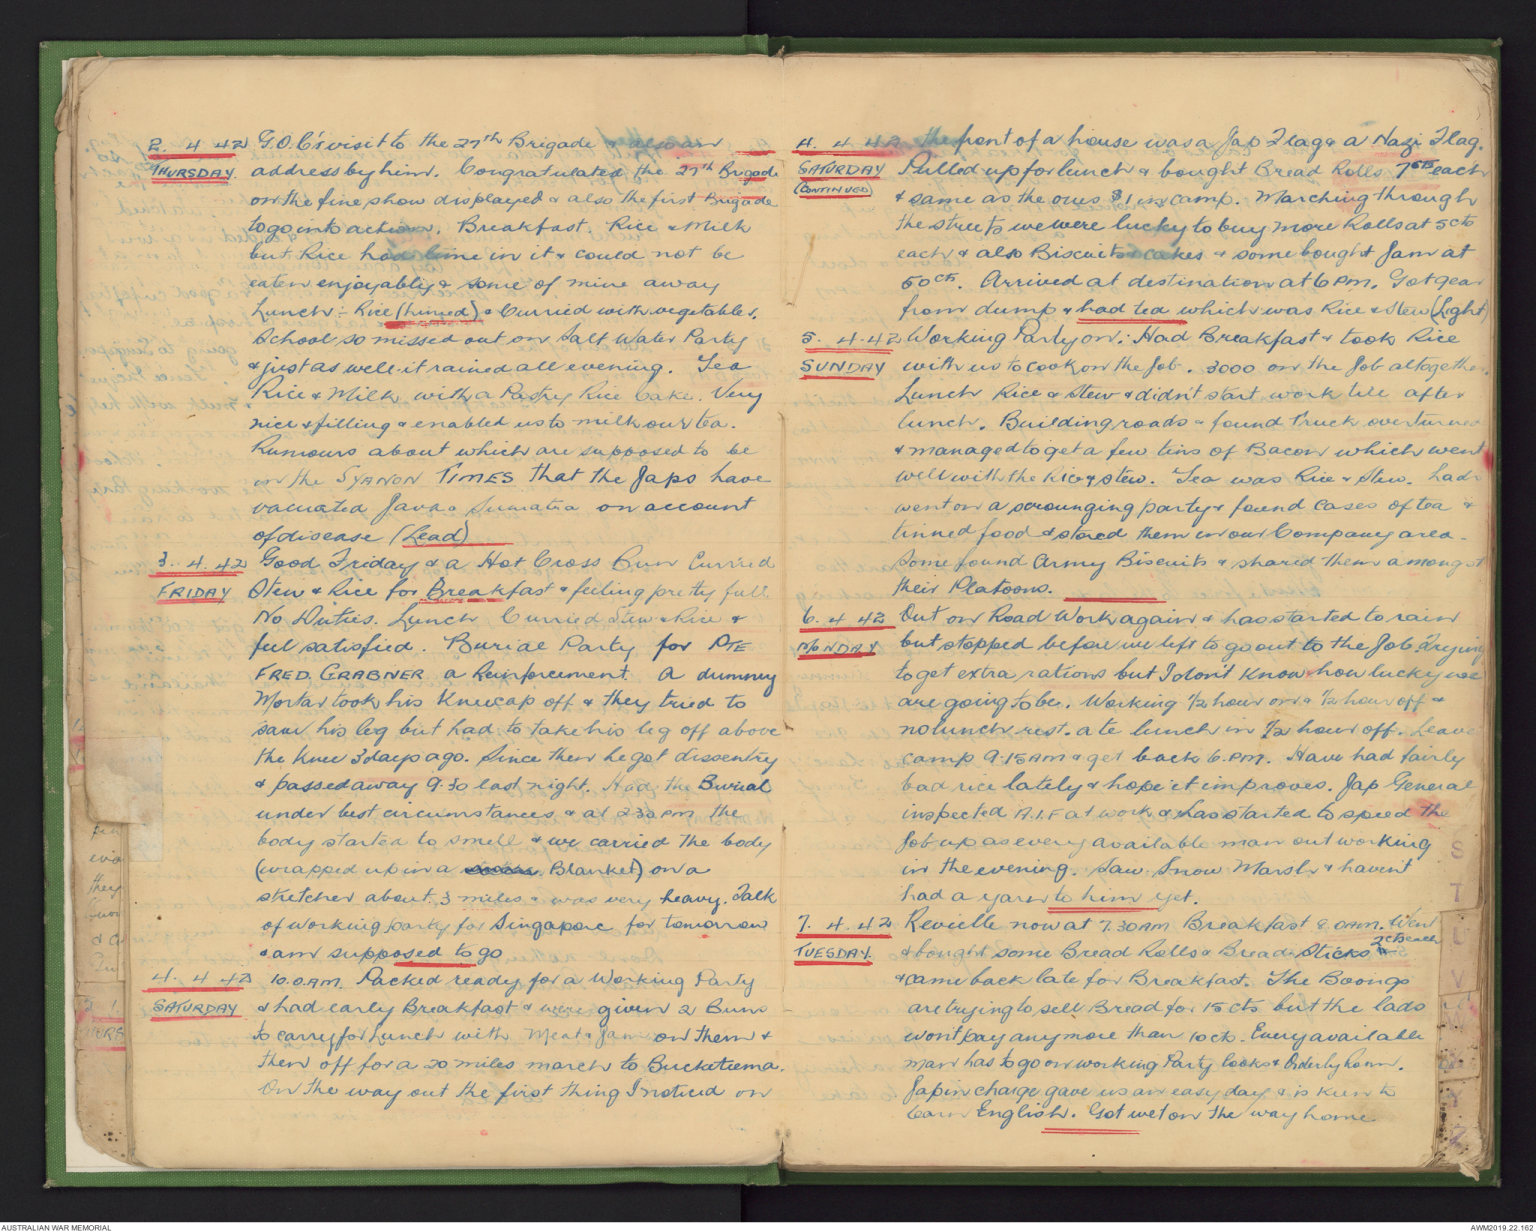 2. 4 42 G.O.C's visit to the 27th Brigade & also an
THURSDAY address by him. Congratulated the 27th Brigade
on the fine show displayed & also the first Brigade
to go into action. Breakfast. Rice & Milk
but Rice had lime in it & could not be
eaten enjoyably & some of mine away
Lunch :- Rice (limed) & Curried with vegetables.
School so missed out on Salt Water Party
& just as well it rained all evening. Tea
Rice & Milk with a Pastry Rice Cake. Very
nice & filling & enabled us to milk our tea.
Rumours about which are supposed to be
in the SYANON TIMES that the Japs have
vacuated Java & Sumatra on account
of disease (Lead)
3. 4. 42 Good Friday & a Hot Cross Bun Curried
FRIDAY Stew & Rice for Breakfast & feeling pretty full.
No Duties. Lunch Curried Stew & Rice &
feel satisfied. Burial Party for PTE
FRED. GRABNER a Reinforcement. A dummy
Mortar took his Kneecap off & they tried to
save his leg but had to take his leg off above
the knee 3 days ago. Since then he got dissentry
& passed away 9.30 last night. Had the Burial
under best circumstances & at 2.30 PM the
body started to smell & we carried the body
(wrapped up in a Blanket) on a
stretcher about 3 miles & was very heavy. Talk
of working party for Singapore for tomorrow
& am supposed to go
4. 4 42 10.0 AM. Packed ready for a Working Party
SATURDAY & had early Breakfast & were given 2 Buns
to carry for Lunch with Meat & Jam on them &
then off for a 20 miles march to Bucketiema.
On the way out the first thing I noticed on
4. 4. 42 the front of a house was a Jap Flag & a Nazi Flag.
SATURDAY Pulled up for lunch & bought Bread Rolls 7cts each
(CONTINUED) & same as the ones $1 in camp. Marching through
the streets we were lucky to buy more Rolls at 5cts
each & also Biscuits & cakes & some bought Jam at
50cts. Arrived at destination at 6 PM. Got gear
from dump & had tea which was Rice & Stew (Light)
5. 4. 42 Working Party on. Had Breakfast & took Rice
SUNDAY with us to cook on the Job. 3000 on the Job altogether.
Lunch Rice & Stew & didn't start work till after
lunch. Building roads & found Truck overturned
& managed to get a few tins of Bacon which went
well with the Rice & stew. Tea was Rice & Stew. Lads
went on a scrounging party & found cases of tea &
tinned food & stored them in our Company area.
Some found Army Biscuits & shared them amongst
their Platoons.
6. 4 42 Out on Road Work again & has started to rain
MONDAY but stopped before we left to go out to the Job. Trying
to get extra rations but I don't know how lucky we
are going to be. Working ½ hour on & ½ hour off &
no lunch rest. ate lunch in ½ hour off. Leave
camp 9.15 AM & get back 6. PM. Have had fairly
bad rice lately & hope it improves. Jap General
inspected A.I.F at work & has started to speed the
Job up as every available man out working
in the evening. Saw Snow Marsh & haven't
had a yarn to him yet.
7. 4. 42 Revielle now at 7.30 AM Breakfast 8.0 AM. Went
TUESDAY. & bought some Bread Rolls & Bread Sticks 2cts each
& came back late for Breakfast. The Boongs
are trying to sell Bread for 15 cts but the lads
won't pay anymore than 10 ct. Every available
man has to go on working Party cooks & Orderly Room.
Jap in charge gave us an easy day & is keen to
learn English. Got wet on the way home
AUSTRALIAN WAR MEMORIAL
AWM2019.22.162